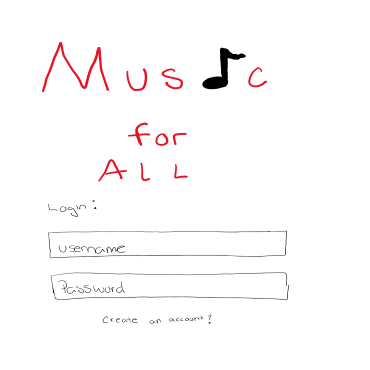 Music
for
ALL
Login:
username
Password
Create an account?